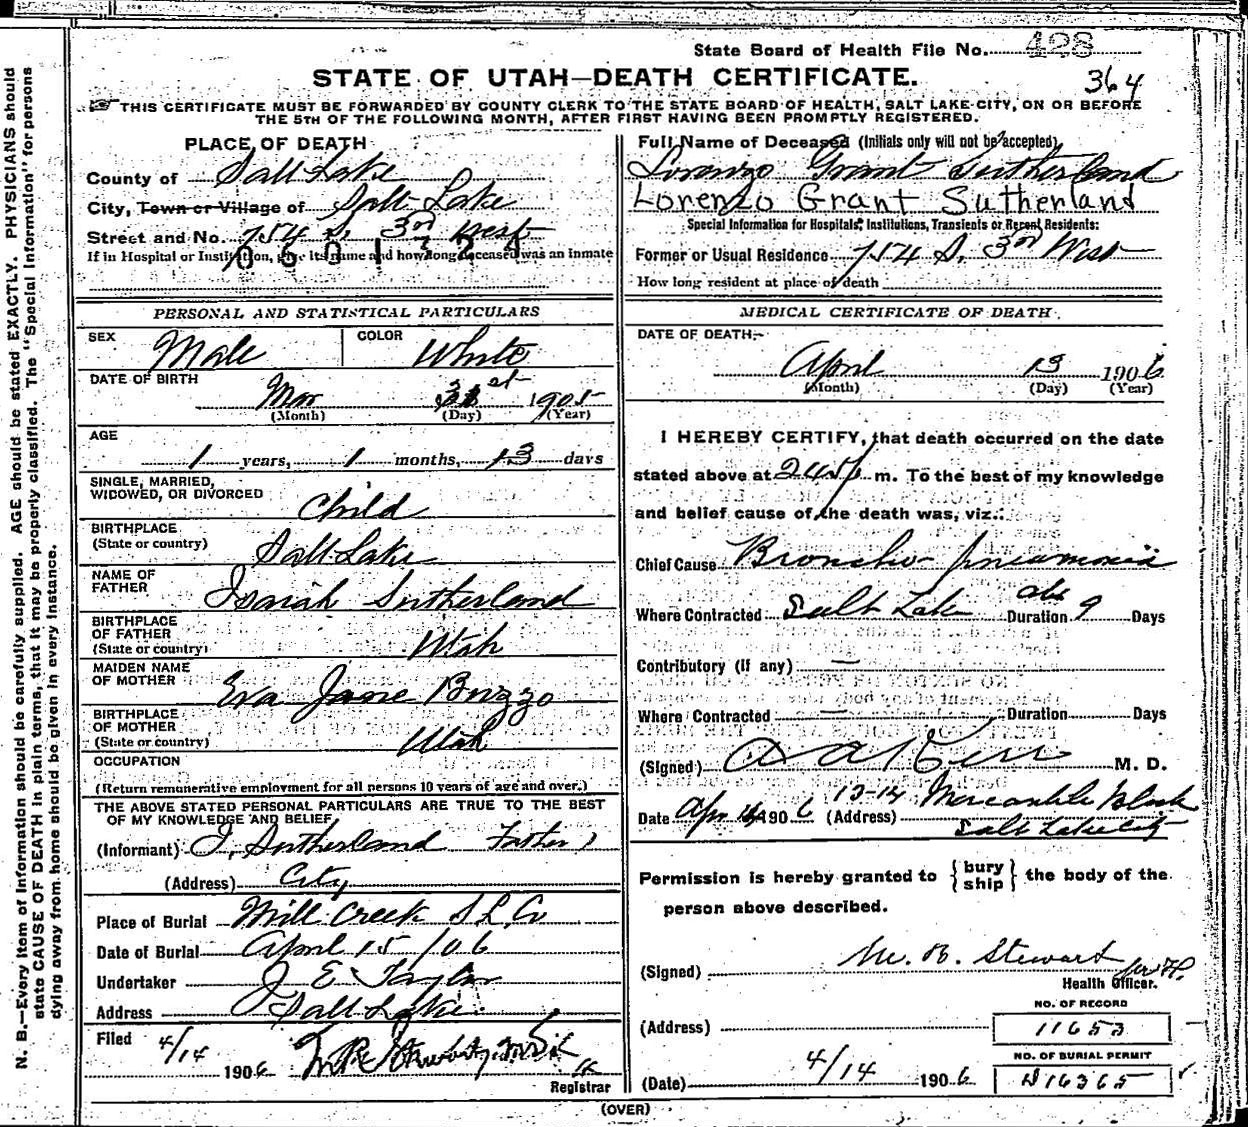 State Board of Health File No. 428
STATE OF UTAH—DEATH CERTIFICATE.
364
THIS CERTIFICATE MUST BE FORWARDED BY COUNTY CLERK TO THE STATE BOARD OF HEALTH, SALT LAKE CITY, ON OR BEFORE
THE 5TH OF THE FOLLOWING MONTH, AFTER FIRST HAVING BEEN PROMPTLY REGISTERED.
N. B.—Every item of information should be carefully supplied. AGE should be stated EXACTLY. PHYSICIANS should
state CAUSE OF DEATH in plain terms, that it may be properly classified. The "Special Information" for persons
dying away from home should be given in every instance.
PLACE OF DEATH
County of Salt Lake
City, Town or Village of Salt Lake
Street and No. 754 S. 3rd West
If in Hospital or Institution, give its name and how long deceased was an inmate
0601324
PERSONAL AND STATISTICAL PARTICULARS
SEX Male COLOR White
DATE OF BIRTH
Mar 31st 1905
(Month) (Day) (Year)
AGE
1 years, 1 months, 13 days
SINGLE, MARRIED,
WIDOWED, OR DIVORCED Child
BIRTHPLACE
(State or country) Salt Lake
NAME OF
FATHER Isaiah Sutherland
BIRTHPLACE
OF FATHER
(State or country) Utah
MAIDEN NAME
OF MOTHER Eva Jane Bozzo
BIRTHPLACE
OF MOTHER
(State or country) Utah
OCCUPATION
(Return remunerative employment for all persons 10 years of age and over.)
THE ABOVE STATED PERSONAL PARTICULARS ARE TRUE TO THE BEST
OF MY KNOWLEDGE AND BELIEF
(Informant) I, Sutherland Father)
(Address) City
Place of Burial Mill Creek S L Co
Date of Burial April 15/06
Undertaker J E Taylor
Address Salt Lake
Filed 4/14
1906
Registrar
Full Name of Deceased (Initials only will not be accepted)
Lorenzo Grant Sutherland
Lorenzo Grant Sutherland
Special Information for Hospitals, Institutions, Transients or Recent Residents:
Former or Usual Residence 754 S. 3rd West
How long resident at place of death
MEDICAL CERTIFICATE OF DEATH.
DATE OF DEATH:—
April 13 1906
(Month) (Day) (Year)
I HEREBY CERTIFY, that death occurred on the date
stated above at 245 m. To the best of my knowledge
and belief cause of the death was, viz.:
Chief Cause Broncho pneumonia
Where Contracted Salt Lake Duration abt 9 Days
Contributory (if any) —
Where Contracted — Duration Days
(Signed) Kerr M. D.
Date Apr 14 1906 (Address) 12-14 Mercantile Block
Salt Lake City
Permission is hereby granted to { bury ship } the body of the
person above described.
(Signed) M. R. Stewart
per
Health Officer.
NO. OF RECORD
(Address) 11653
NO. OF BURIAL PERMIT
(Date) 4/14 1906 N16365
(OVER)